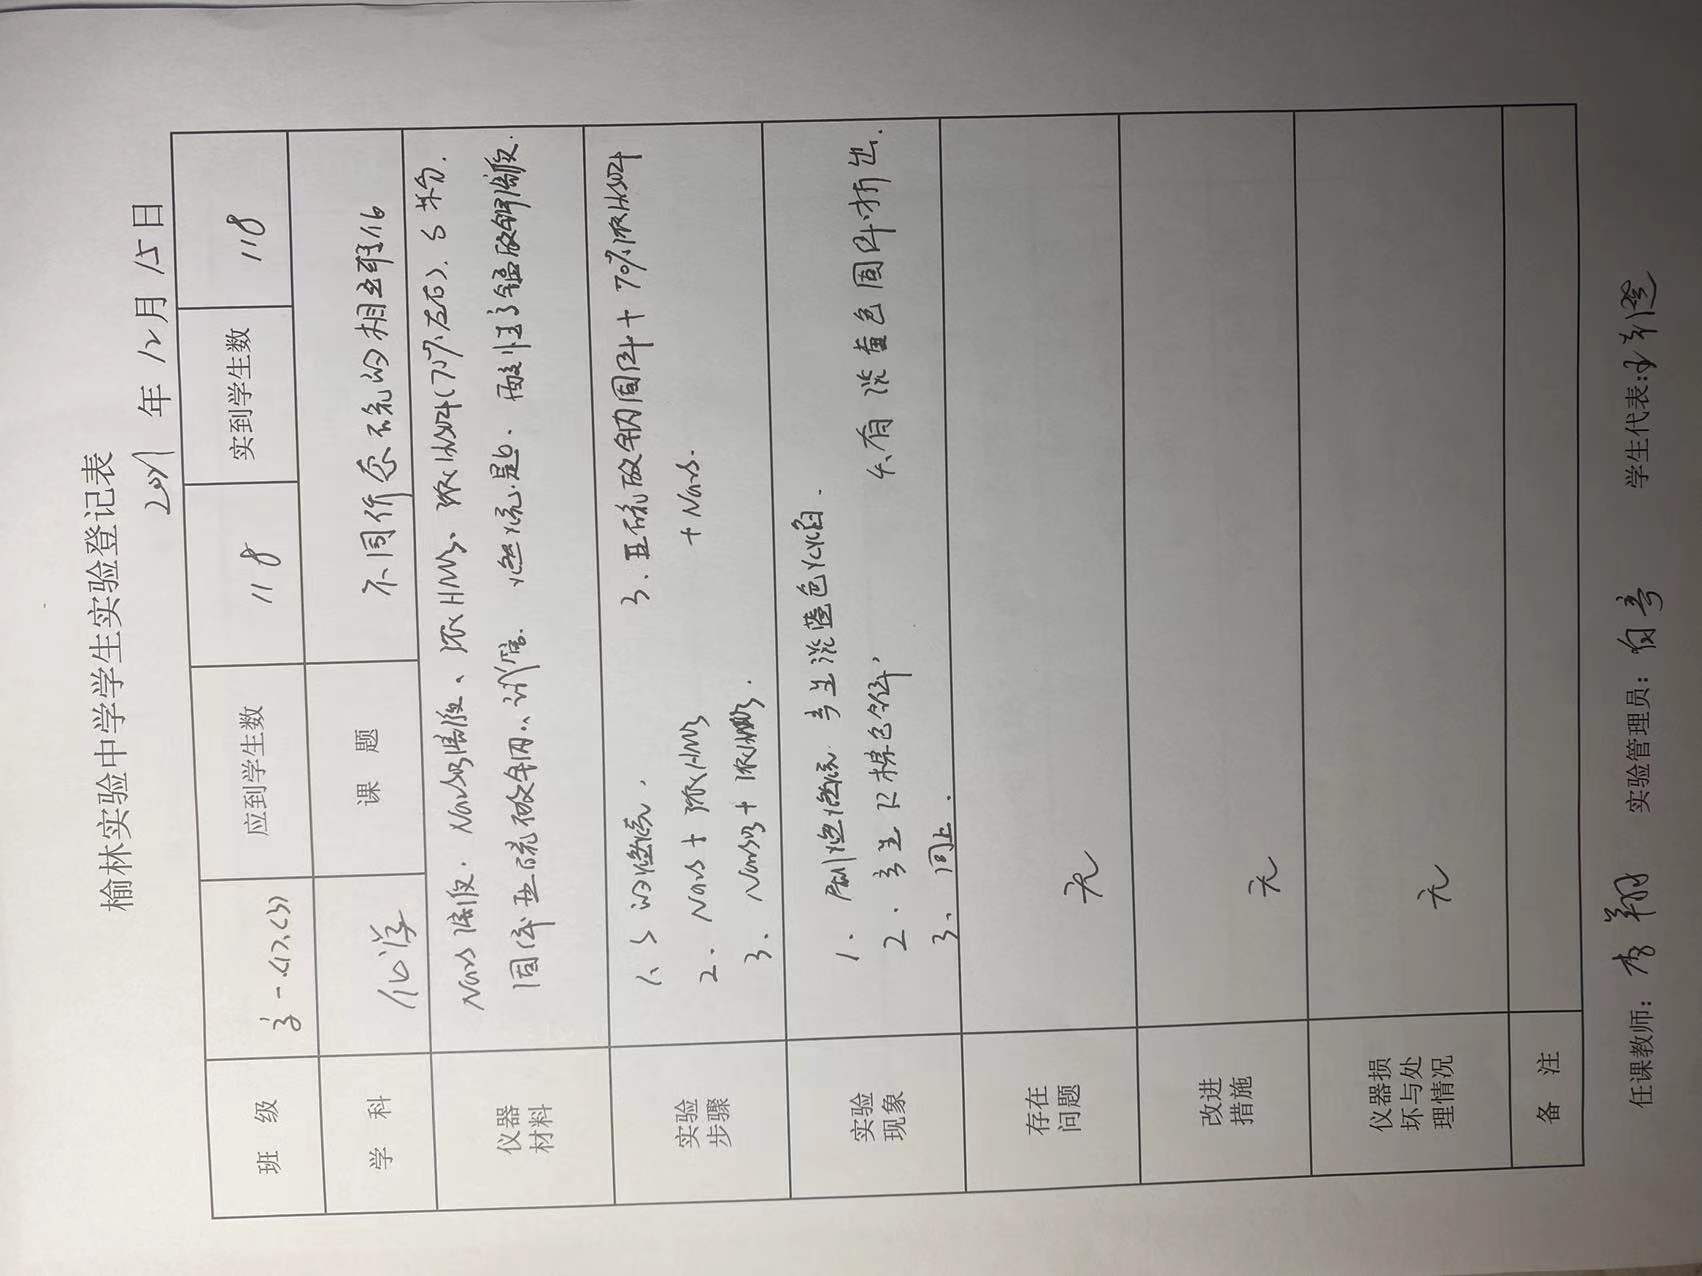 榆林实验中学学生实验登记表
2021年12月15日
班 级 高一(1),(3) 应到学生数 118 实到学生数 118
学 科 化学 课 题 不同价态硫的相互转化
仪器材料 Na2S溶液、Na2SO3溶液、浓HNO3、浓H2SO4(75%左右)、S粉、
固体亚硫酸钠、试管、燃烧匙、酸性高锰酸钾溶液.
实验步骤 1、S的燃烧.
2、Na2S + 浓HNO3
3、Na2SO3 + 浓HNO3.
3、亚硫酸钠固体 + 70%浓H2SO4
+ Na2S.
实验现象 1、燃烧 产生淡蓝色火焰.
2、产生红棕色气体,
3、同上.
4、有淡黄色固体析出.
存在问题 无
改进措施 无
仪器损坏与处理情况 无
备 注
任课教师：李翔 实验管理员： 学生代表：